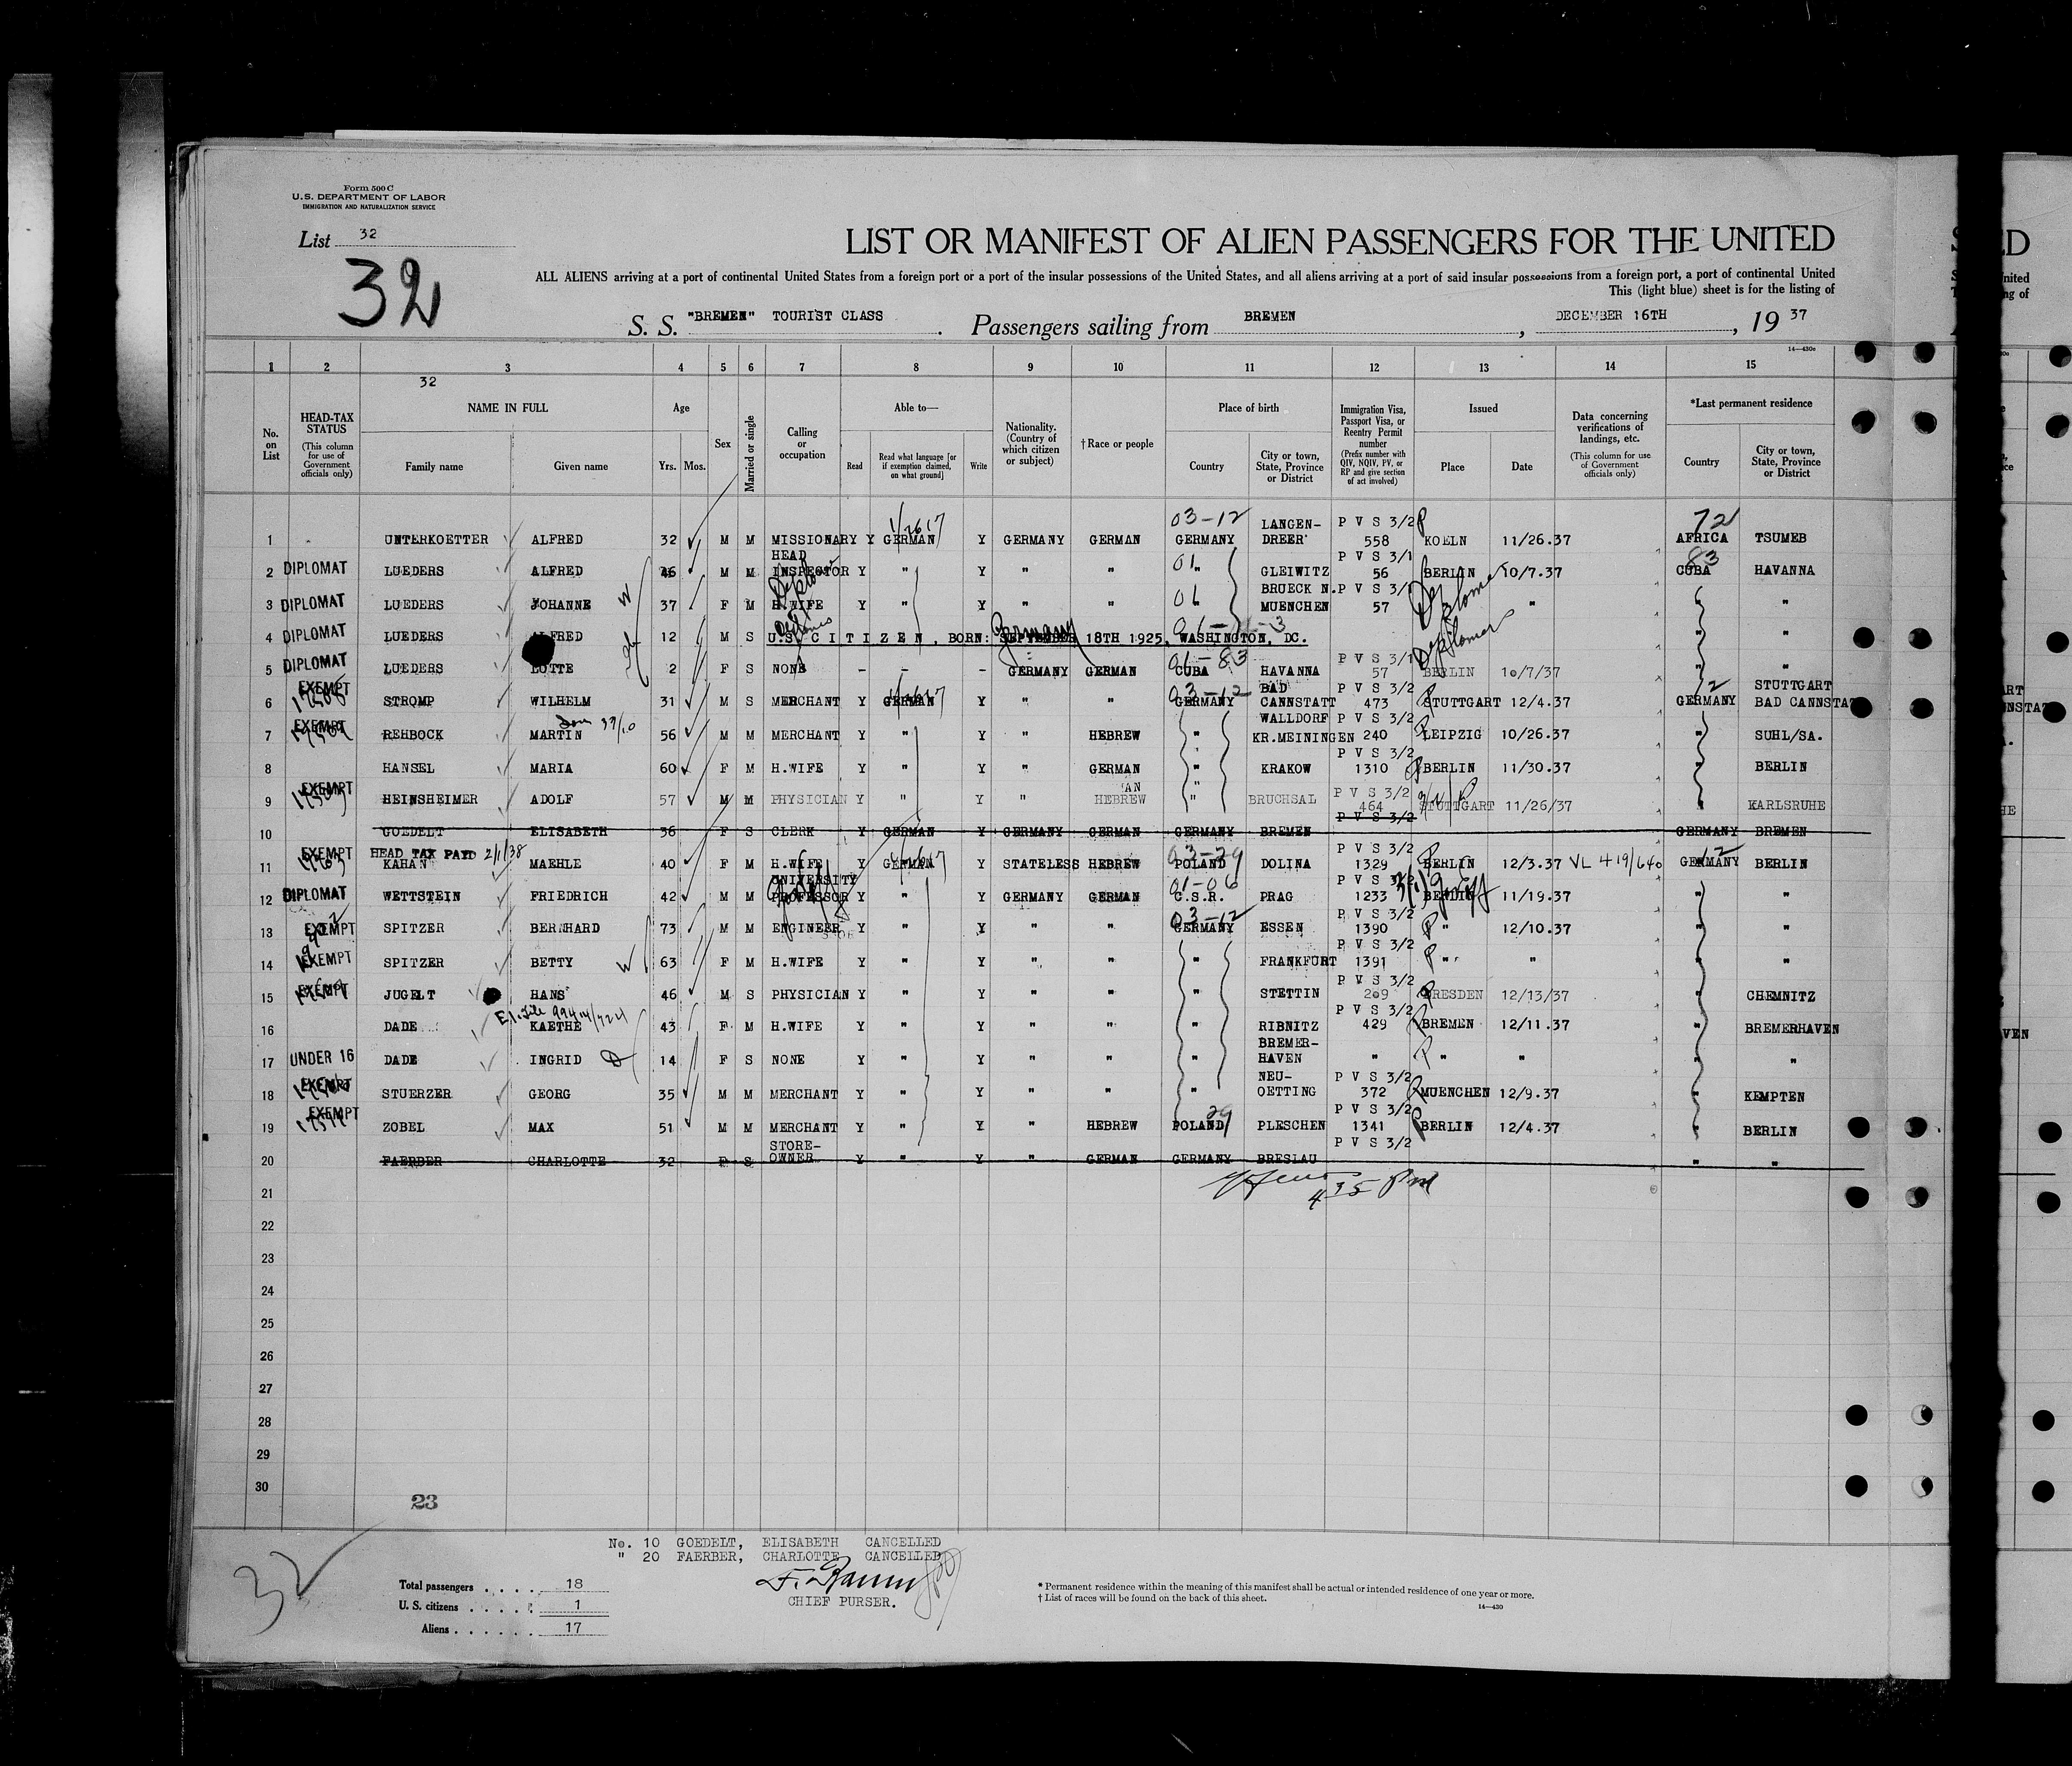 Form 500 C
U.S. DEPARTMENT OF LABOR
IMMIGRATION AND NATURALIZATION SERVICE
List 32
32
LIST OR MANIFEST OF ALIEN PASSENGERS FOR THE UNITED
ALL ALIENS arriving at a port of continental United States from a foreign port or a port of the insular possessions of the United States, and all aliens arriving at a port of said insular possessions from a foreign port, a port of continental United
This (light blue) sheet is for the listing of
S. S. "BREMEN" TOURIST CLASS . Passengers sailing from BREMEN , DECEMBER 16TH , 19 37
14—430c
1 2 3 4 5 6 7 8 9 10 11 12 13 14 15
32
No. on List
HEAD-TAX STATUS (This column for use of Government officials only)
NAME IN FULL
Family name Given name
Age
Yrs. Mos.
Sex
Married or single
Calling or occupation
Able to—
Read Read what language [or if exemption claimed, on what ground] Write
Nationality. (Country of which citizen or subject)
†Race or people
Place of birth
Country City or town, State, Province or District
Immigration Visa, Passport Visa, or Reentry Permit number (Prefix number with QIV, NQIV, PV, or RP and give section of act involved)
Issued
Place Date
Data concerning verifications of landings, etc. (This column for use of Government officials only)
*Last permanent residence
Country City or town, State, Province or District
03-12 LANGEN- P V S 3/2 72
1 UNTERKOETTER ALFRED 32 M M MISSIONARY Y GERMAN Y GERMANY GERMAN GERMANY DREER 558 KOELN 11/26.37 AFRICA TSUMEB
HEAD 01 P V S 3/1 83
2 DIPLOMAT LUEDERS ALFRED 46 M M INSPECTOR Y " Y " " " GLEIWITZ 56 BERLIN 10/7.37 CUBA HAVANNA
01 BRUECK N. P V S 3/1 Diplomat
3 DIPLOMAT LUEDERS JOHANNE W 37 F M H.WIFE Y " Y " " MUENCHEN 57 " " "
4 DIPLOMAT LUEDERS ALFRED 12 M S U.S. C I T I Z E N , BORN: SEPTEMBER 18TH 1925, WASHINGTON, DC. " "
Germany
01-83 P V S 3/1
5 DIPLOMAT LUEDERS LOTTE 2 F S NONE - - - GERMANY GERMAN CUBA HAVANNA 57 BERLIN 10/7/37 " "
EXEMPT 03-12 BAD P V S 3/2 12 STUTTGART
6 STROMP WILHELM 31 M S MERCHANT Y GERMAN Y " " GERMANY CANNSTATT 473 STUTTGART 12/4.37 GERMANY BAD CANNSTAT
EXEMPT WALLDORF P V S 3/2
7 REHBOCK MARTIN 56 M M MERCHANT Y " Y " HEBREW " KR.MEININGEN 240 LEIPZIG 10/26.37 " SUHL/SA.
P V S 3/2
8 HANSEL MARIA 60 F M H.WIFE Y " Y " GERMAN " KRAKOW 1310 BERLIN 11/30.37 " BERLIN
EXEMPT P V S 3/2
9 HEINSHEIMER ADOLF 57 M M PHYSICIAN Y " Y " HEBREW " BRUCHSAL 464 STUTTGART 11/26/37 " KARLSRUHE
P V S 3/2
10 GOEDELT ELISABETH 36 F S CLERK Y GERMAN Y GERMANY GERMAN GERMANY BREMEN GERMANY BREMEN
EXEMPT HEAD TAX PAYD 2/1/38 03-29 P V S 3/2 12
11 KAHAN MAEHLE 40 F M H.WIFE Y GERMAN Y STATELESS HEBREW POLAND DOLINA 1329 BERLIN 12/3.37 VL 419/640 GERMANY BERLIN
UNIVERSITY 01-06 P V S 3/2
12 DIPLOMAT WETTSTEIN FRIEDRICH 42 M M PROFESSOR Y " Y GERMANY GERMAN C.S.R. PRAG 1233 BERLIN 11/19.37 " "
03-12 P V S 3/2
13 EXEMPT SPITZER BERNHARD 73 M M ENGINEER Y " Y " " GERMANY ESSEN 1390 " 12/10.37 " "
P V S 3/2
14 EXEMPT SPITZER BETTY W 63 F M H.WIFE Y " Y " " " FRANKFURT 1391 " " " "
P V S 3/2
15 EXEMPT JUGELT HANS 46 M S PHYSICIAN Y " Y " " " STETTIN 209 DRESDEN 12/13/37 " CHEMNITZ
P V S 3/2
16 DADE KAETHE 43 F M H.WIFE Y " Y " " " RIBNITZ 429 BREMEN 12/11.37 " BREMERHAVEN
BREMER-
17 UNDER 16 DADE INGRID D 14 F S NONE Y " Y " " " HAVEN " " " " "
EXEMPT NEU- P V S 3/2
18 STUERZER GEORG 35 M M MERCHANT Y " Y " " " OETTING 372 MUENCHEN 12/9.37 " KEMPTEN
EXEMPT 29 P V S 3/2
19 ZOBEL MAX 51 M M MERCHANT Y " Y " HEBREW POLAND PLESCHEN 1341 BERLIN 12/4.37 " BERLIN
STORE- P V S 3/2
20 FAERBER CHARLOTTE 32 F S OWNER Y " Y " GERMAN GERMANY BRESLAU " "
21 4 35 Pm
22
23
24
25
26
27
28
29
30
23
32
No. 10 GOEDELT, ELISABETH CANCELLED
" 20 FAERBER, CHARLOTTE CANCELLED
CHIEF PURSER.
Total passengers . . . . 18
U. S. citizens . . . . . 1
Aliens . . . . . . 17
* Permanent residence within the meaning of this manifest shall be actual or intended residence of one year or more.
† List of races will be found on the back of this sheet.
14—430